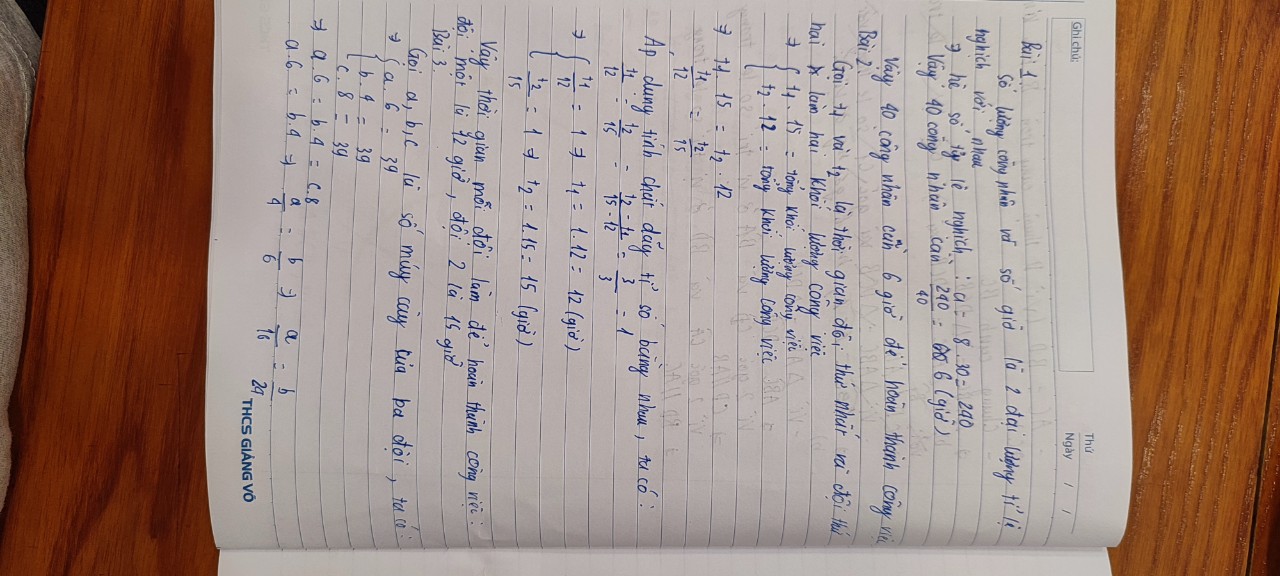 Ghi chú:
Thứ
Ngày / /
Bài 1
Số lượng công nhân và số giờ là 2 đại lượng tỉ lệ
nghịch với nhau
⇒ hệ số tỷ lệ nghịch : a = 8 . 30 = 240
Vậy 40 công nhân cần 240/40 = 6 (giờ)
Vậy 40 công nhân cần 6 giờ để hoàn thành công việc
Bài 2
Gọi t1 và t2 là thời gian đội thứ nhất và đội thứ
hai làm hai khối lượng công việc
⇒ { t1 . 15 = tổng khối lượng công việc
{ t2 . 12 = tổng khối lượng công việc
⇒ t1 . 15 = t2 . 12
t1/12 = t2/15
Áp dụng tính chất dãy tỉ số bằng nhau, ta có :
t1/12 = t2/15 = t2 - t1/15 - 12 = 3/3 = 1
⇒ { t1/12 = 1 ⇒ t1 = 1.12 = 12 (giờ)
{ t2/15 = 1 ⇒ t2 = 1.15 = 15 (giờ)
Vậy thời gian mỗi đội làm để hoàn thành công việc :
đội một là 12 giờ, đội 2 là 15 giờ
Bài 3
Gọi a, b, c là số máy cày của ba đội, ta có :
⇒ { a . 6 = 39
{ b . 4 = 39
{ c . 8 = 39
⇒ a . 6 = b . 4 = c . 8
a . 6 = b . 4 ⇒ a/4 = b/6 ⇒ a/16 = b/24
THCS GIẢNG VÕ